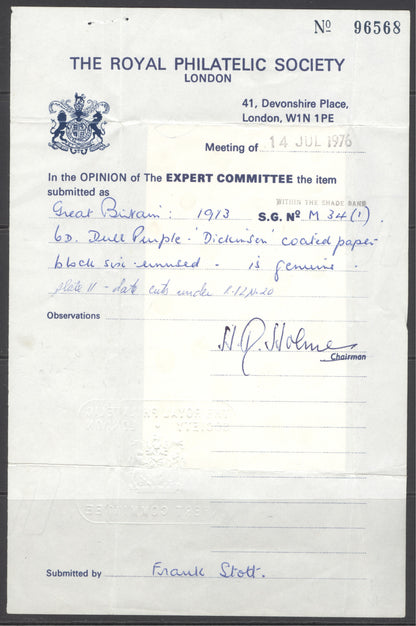 No 96568
THE ROYAL PHILATELIC SOCIETY
LONDON
41, Devonshire Place,
London, W1N 1PE
Meeting of 14 JUL 1976
In the OPINION of The EXPERT COMMITTEE the item
submitted as
WITHIN THE SHADE BAND
Great Britain: 1913 S.G. No M 34(1).
6D. Dull Purple - 'Dickinson' coated paper
block six unused - is genuine.
plate 11 - date cuts under
Observations
H.R. Holmes
Chairman
THE ROYAL PHILATELIC
SOCIETY LONDON
EXPERT COMMITTEE
Submitted by Frank Stott.